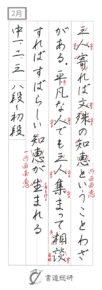 ２月
三人寄れば文殊の知恵ということわざ
がある。平凡な人でも三人集まって相談
すればすばらしい知恵が生まれる
中一二三 八段〜初段
書道総研